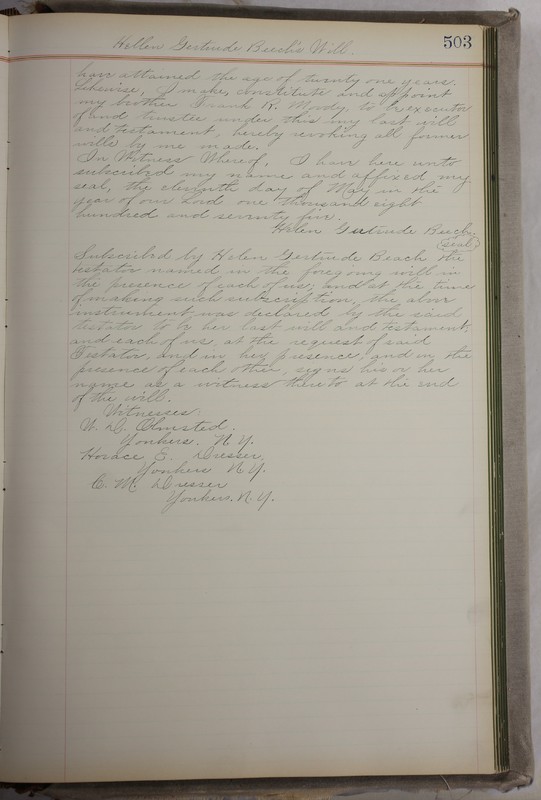 Hellen Gertrude Beech's Will.
503
have attained the age of twenty one years.
Likewise, I make, constitute and appoint
my brother Frank R. Moody, to be executor
of and trustee under this my last will
and testament, hereby revoking all former
wills by me made.
In Witness Whereof, I have here unto
subscribed my name and affixed my
seal, the eleventh day of May in the
year of our Lord one thousand eight
hundred and seventy five.
Helen Gertrude Beech.
(seal)
Subscribed by Helen Gertrude Beach the
testator named in the foregoing will in
the presence of each of us; and at the time
of making such subscription, the above
instrument was declared by the said
testator to be her last will and testament;
and each of us, at the request of said
Testator, and in her presence, and in the
presence of each other, signs his or her
name as a witness thereto at the end
of the will.
Witnesses
W. D. Olmsted.
Yonkers. N. Y.
Horace E. Dresser,
Yonkers N. Y.
C. M. Dresser
Yonkers. N. Y.